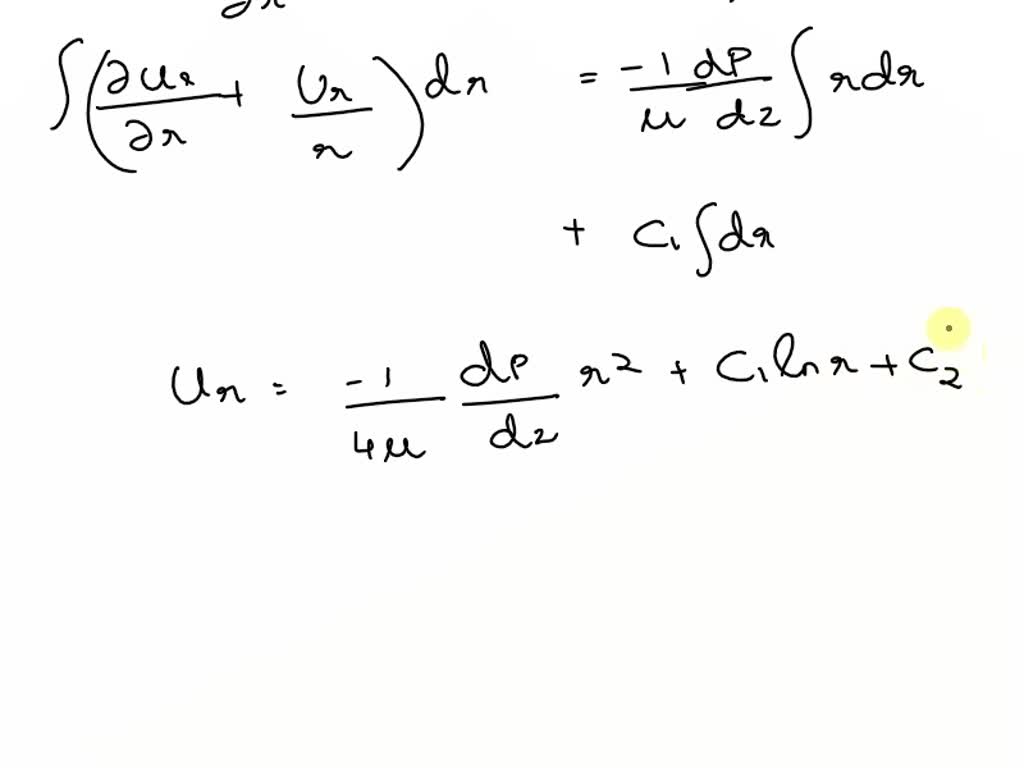 ∂r
∫(∂Ur/∂r + Ur/r)dr = -1/μ dP/dz ∫rdr
+ C₁∫dr
Ur = -1/4μ dP/dz r² + C₁lnr + C₂